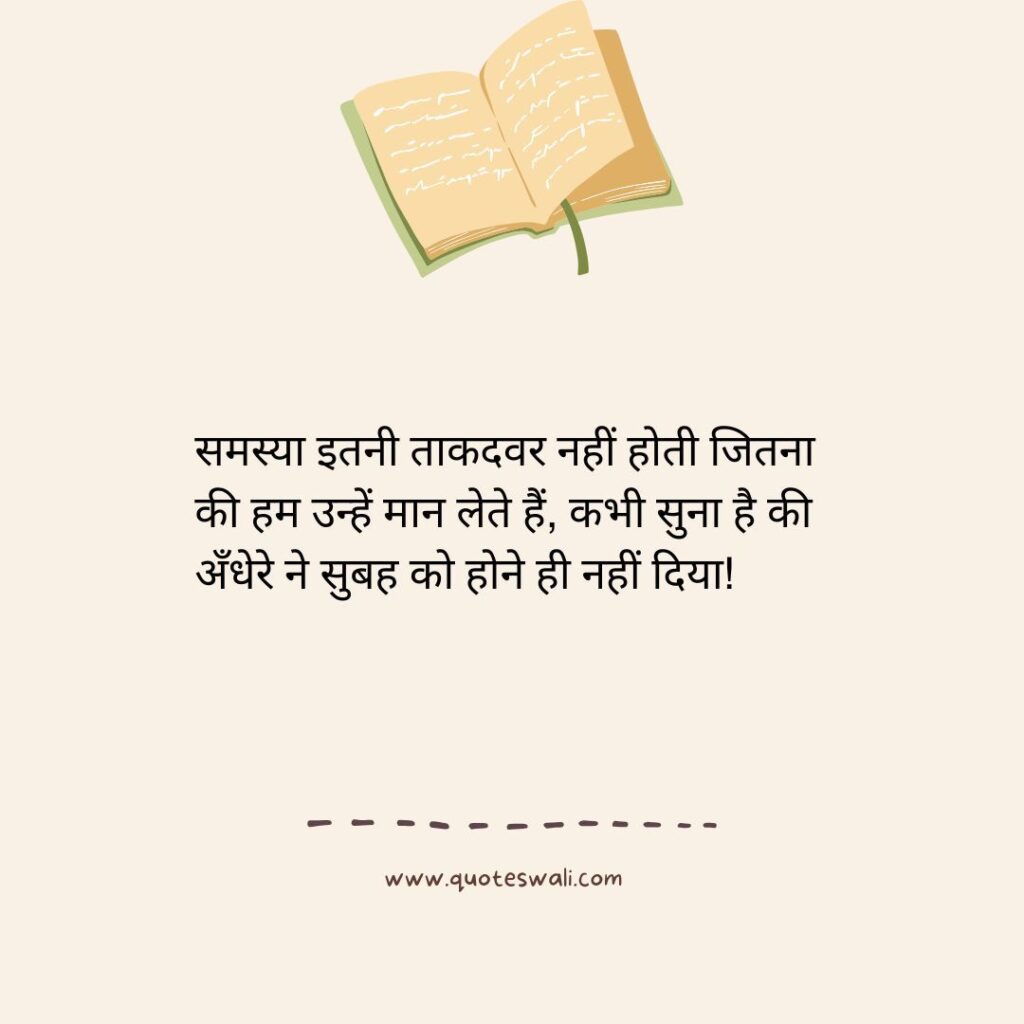 समस्या इतनी ताकदवर नहीं होती जितना
की हम उन्हें मान लेते हैं, कभी सुना है की
अँधेरे ने सुबह को होने ही नहीं दिया!
www.quoteswali.com